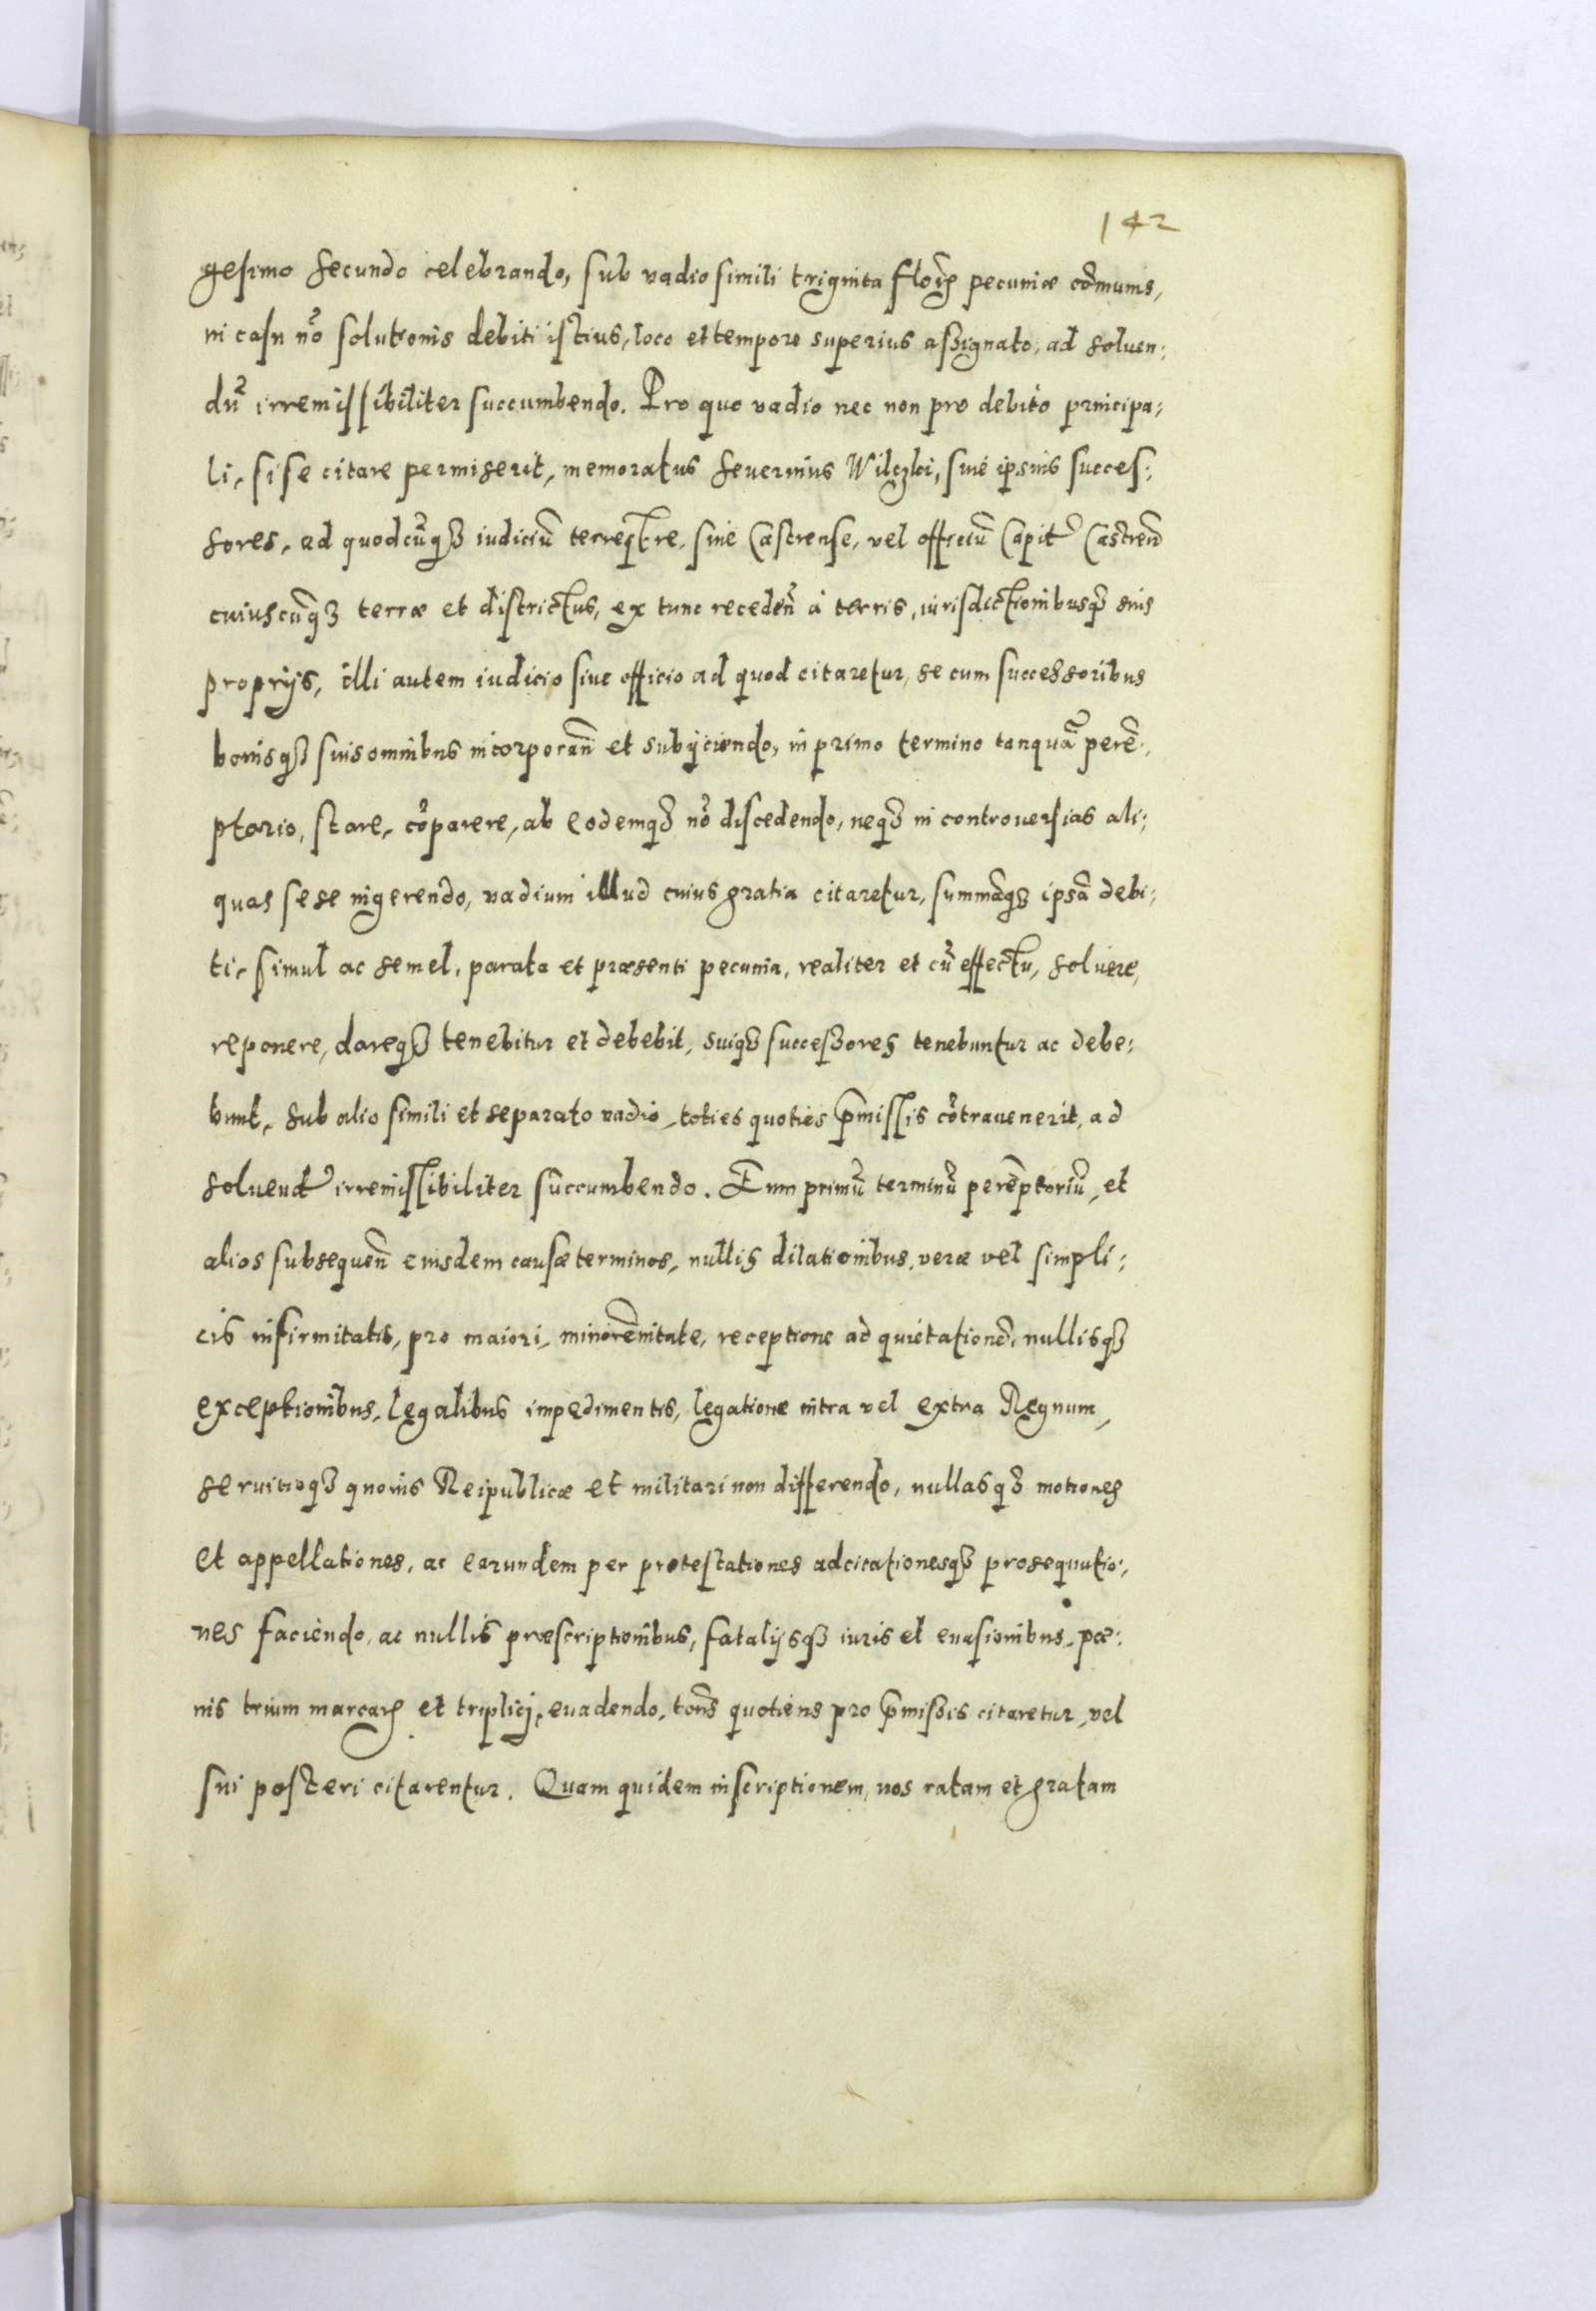 142
gesimo secundo celebrando, sub vadio simili triginta floꝝ pecuniæ cōmunis,
in casu nō solutionis debiti istius, loco et tempore superius assignato, ad soluen:
dū irremissibiliter succumbendo. Pro quo vadio nec non pro debito principa:
li, si se citare permiserit, memoratus Seuerinus Wilczki, siue ipsius succes:
sores, ad quodcūqꝫ iudiciū terrestre, siue Castrense, vel officiū Capit Castren̄
cuiuscūqꝫ terræ et districtus, ex tunc receden̄ à terris, iurisdictionibusqꝫ suis
proprijs, illi autem iudicio siue officio ad quod citaretur, se cum successoribus
bonisqꝫ suis omnibus incorporan̄ et subijciendo, in primo termino tanquā perē:
ptorio, stare, cōparere, ab eodemqꝫ nō discedendo, neqꝫ in controuersias ali:
quas sese ingerendo, vadium illud cuius gratia citaretur, summāqꝫ ipsā debi:
ti, simul ac semel, parata et præsenti pecunia, realiter et cū effectu, soluere,
reponere, dareqꝫ tenebitur et debebit, suiqꝫ successores tenebuntur ac debe:
bunt, sub alio simili et separato vadio, toties quoties p̄missis cōtrauenerit, ad
soluend irremissibiliter succumbendo. Eum primū terminū perēptoriū, et
alios subsequen̄ eiusdem causæ terminos, nullis dilationibus, veræ vel simpli:
cis infirmitatis, pro maiori, minorēnitate, receptione ad quietationē, nullisqꝫ
exceptionibus, legalibus impedimentis, legatione intra vel extra Regnum,
seruitioqꝫ quouis Reipublicæ et militari non differendo, nullasqꝫ motiones
et appellationes, ac earundem per protestationes adcitationesqꝫ prosequutio:
nes faciendo, ac nullis præscriptionibus, fatalijsqꝫ iuris et euasionibus, pœ:
nis trium marcaꝝ et triplici, euadendo, tōns quotiens pro p̄missis citaretur, vel
sui posteri citarentur. Quam quidem inscriptionem, nos ratam et gratam